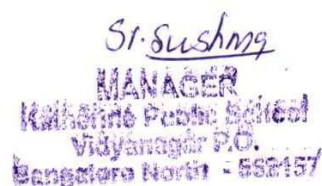 Sr. Sushma
MANAGER
Katherine Public School
Vidyanagar P.O.
Bangalore North - 562157